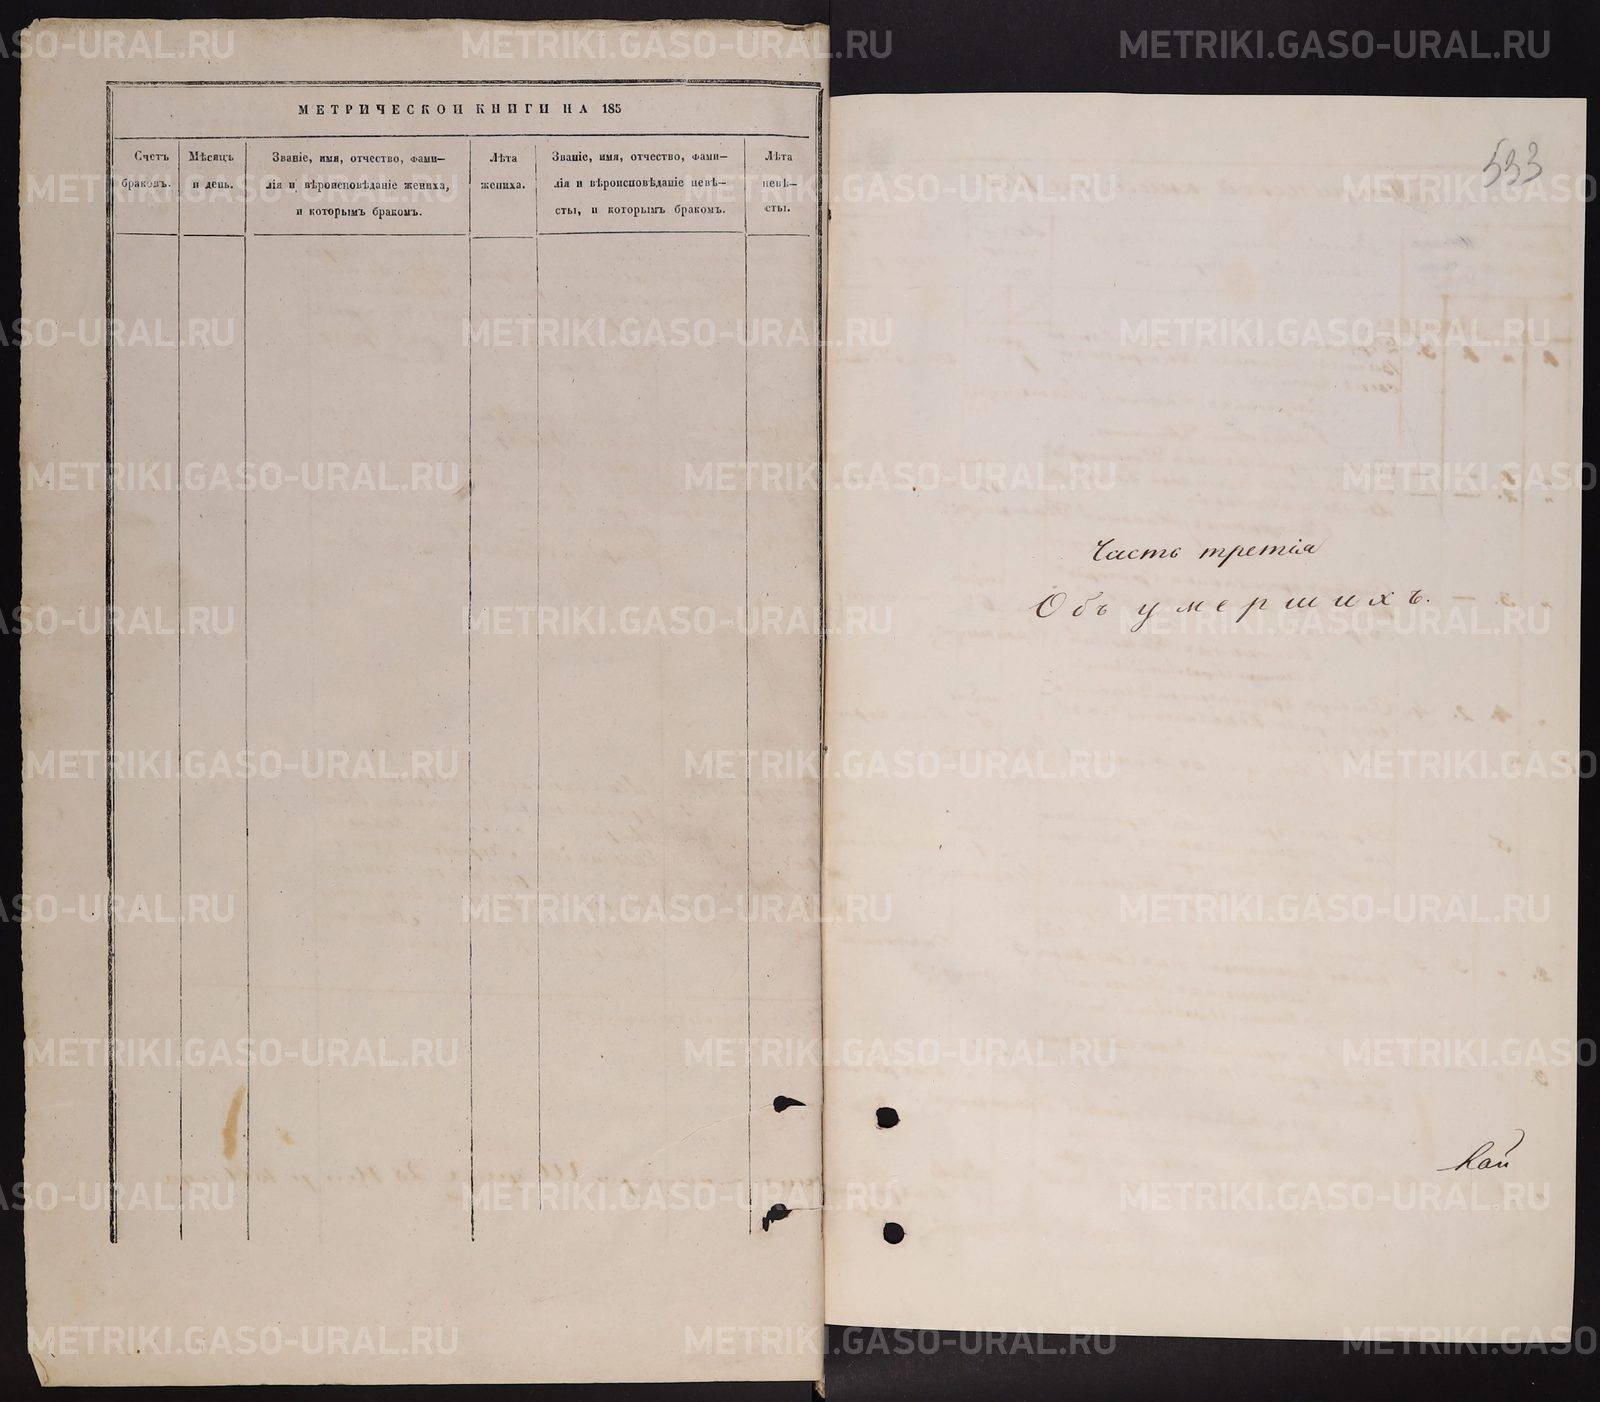 МЕТРИЧЕСКОИ КНИГИ НА 185
Счетъ
браковъ.
Мѣсяцъ
и день.
Званіе, имя, отчество, фами—
лія и вѣроисповѣданіе жениха,
и которымъ бракомъ.
Лѣта
жениха.
Званіе, имя, отчество, фами—
лія и вѣроисповѣданіе невѣ—
сты, и которымъ бракомъ.
Лѣта
невѣ—
сты.
533
Часть третія
Объ умершихъ.
METRIKI.GASO-URAL.RU